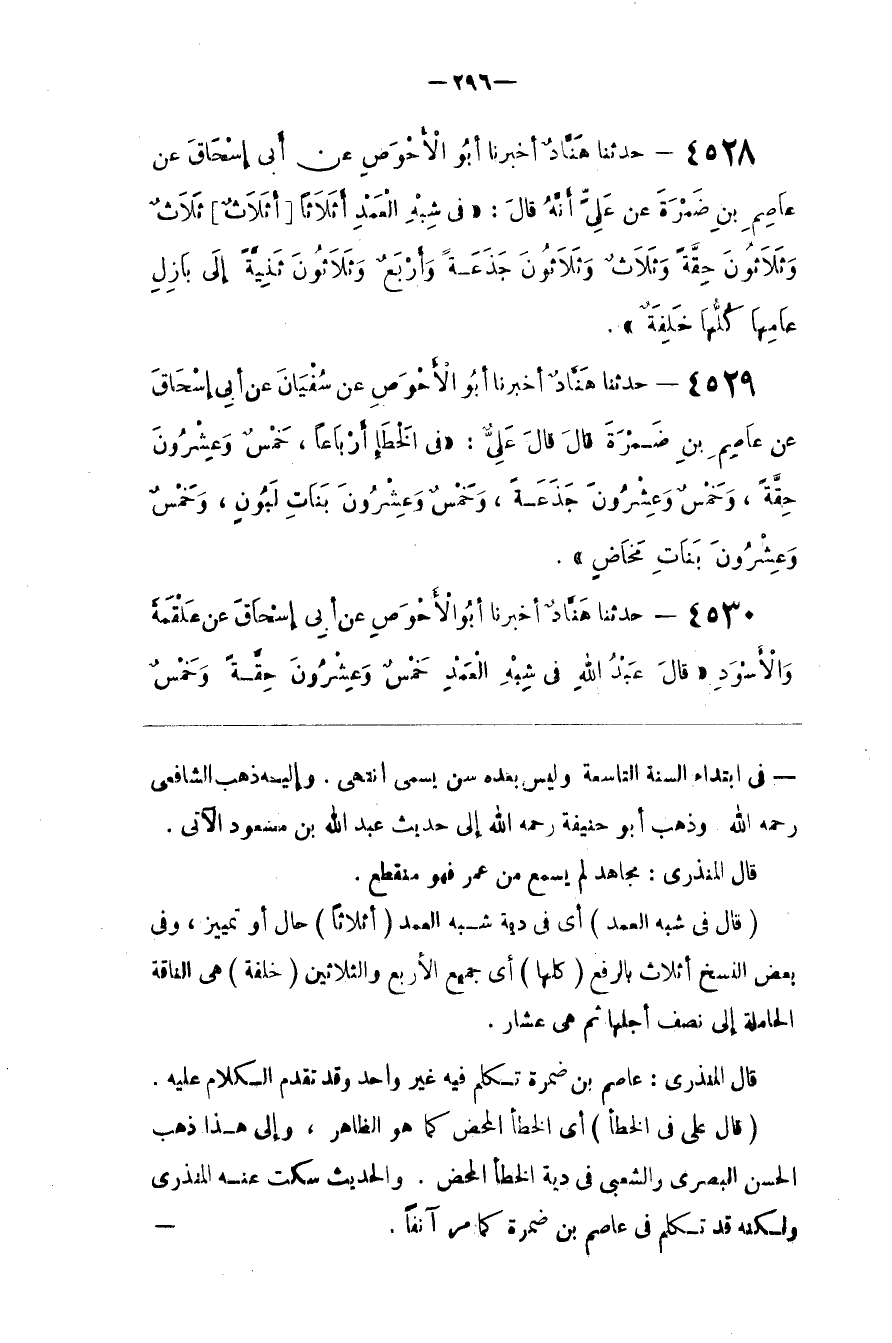 — ٢٩٦ —
٤٥٢٨ — حدثنا هَنَّادٌ أخبرنا أبُو الْأَحْوَصِ عن أَبى إسْحَاقَ عن
عاَصِمِ بنِ ضَمْرَةَ عن عَلِىٍّ أَنَّهُ قالَ : « فى شِبْهِ الْعَمْدِ أَثْلَاثاً [ أَثْلَاثٌ ] ثَلَاثٌ
وَثَلَاثُونَ حِقَّةً وَثَلَاثٌ وَثَلَاثُونَ جَذَعَـةً وَأَرْبَعٌ وَثَلَاثُونَ ثَنِيَّةً إلَى بَازِلِ
عاَمِهاَ كُلُّهاَ خَلِفَةٌ » .
٤٥٢٩ — حدثنا هَنَّادٌ أخبرنا أبُو الْأَحْوَصِ عن سُفْيَانَ عن أبى إسْحَاقَ
عن عاَصِمِ بنِ ضَـمْرَةَ قالَ قالَ عَلِىٌّ : « فى الْخَطَإِ أَرْبَاعاً ، خَمْسٌ وَعِشْرُونَ
حِقَّةً ، وَخَمْسٌ وَعِشْرُونَ جَذَعَـةً ، وَخَمْسٌ وَعِشْرُونَ بَنَاتِ لَبُونٍ ، وَخَمْسٌ
وَعِشْرُونَ بَنَاتِ مَخَاضٍ » .
٤٥٣٠ — حدثنا هَنَّادٌ أخبرنا أبُو الْأَحْوَصِ عن أبى إسْحَاقَ عن عَلْقَمَةَ
وَالْأَسْوَدِ « قالَ عَبْدُ اللهِ فى شِبْهِ الْعَمْدِ خَمْسٌ وَعِشْرُونَ حِقَّـةً وَخَمْسٌ
— فى ابتداء السنة التاسعة وليس بعده سن يسمى انتهى . وإليـه ذهب الشافعى
رحمه الله وذهب أبو حنيفة رحمه الله إلى حديث عبد الله بن مسعود الآتى .
قال المنذرى : مجاهد لم يسمع من عمر فهو منقطع .
( قال فى شبه العمد ) أى فى دية شـبه العمد ( أثلاثاً ) حال أو تمييز ، وفى
بعض النسخ أثلاث بالرفع ( كلها ) أى جميع الأربع والثلاثين ( خلفة ) هى الناقة
الحاملة إلى نصف أجلها ثم هى عشار .
قال المنذرى : عاصم بن ضمرة تـكلم فيه غير واحد وقد تقدم الـكلام عليه .
( قال على فى الخطأ ) أى الخطأ المحض كما هو الظاهر ، وإلى هـذا ذهب
الحسن البصرى والشعبى فى دية الخطأ المحض . والحديث سكت عنـه المنذرى
ولـكنه قد تـكلم فى عاصم بن ضمرة كما مر آنفاً . —